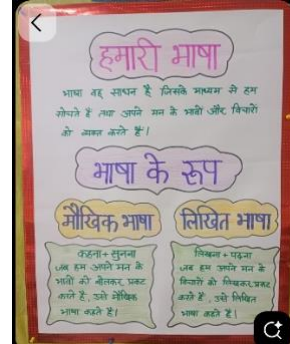 हमारी भाषा
भाषा वह साधन है जिसके माध्यम से हम
सोचते है तथा अपने मन के भावों और विचारों
को व्यक्त करते है।
भाषा के रूप
मौखिक भाषा
कहना + सुनना
जब हम अपने मन के
भावों को बोलकर प्रकट
करते है, उसे मौखिक
भाषा कहते है।
लिखित भाषा
लिखना + पढ़ना
जब हम अपने मन के
विचारों को लिखकर प्रकट
करते है, उसे लिखित
भाषा कहते है।